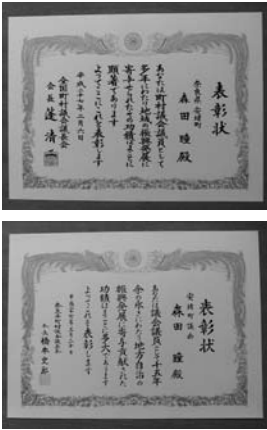 表彰状
奈良県 安堵町
森田 瞳 殿
あなたは町村議会議員として
多年にわたり地域の振興発展に
寄与せられたその功績はまことに
顕著であります
よってここにこれを表彰します
平成二十七年二月六日
全国町村議会議長会
会長 蓬 清二
表彰状
安堵町議会
森田 瞳 殿
あなたは議会議員として十五年
余の永きにわたり地方自治の
振興発展に寄与貢献された
功績はまことに多大であります
よってこれを表彰します